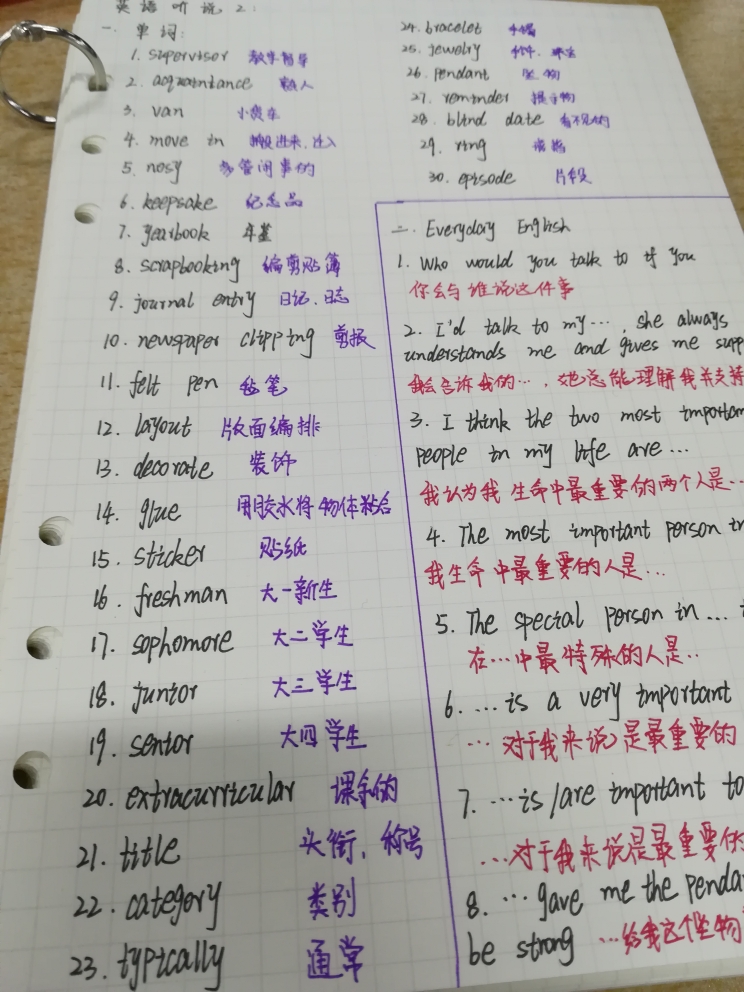 英语听说2:
一、单词:
1. supervisor 教学督导
2. acquaintance 熟人
3. van 小货车
4. move in 搬进来、迁入
5. nosy 多管闲事的
6. keepsake 纪念品
7. yearbook 年鉴
8. scrapbooking 编剪贴簿
9. journal entry 日记、日志
10. newspaper clipping 剪报
11. felt pen 毡笔
12. layout 版面编排
13. decorate 装饰
14. glue 用胶水将物体粘合
15. sticker 贴纸
16. freshman 大一新生
17. sophomore 大二学生
18. junior 大三学生
19. senior 大四学生
20. extracurricular 课余的
21. title 头衔、称号
22. category 类别
23. typically 通常
24. bracelet 手镯
25. jewelry
26. pendant 坠物
27. reminder 提示物
28. blind date 看不见的
29. ring 诺格
30. episode 片段
二、Everyday English
1. Who would you talk to if you
你会与谁说这件事
2. I'd talk to my…, she always
understands me and gives me supp
我会告诉我的…，她总能理解我并支持
3. I think the two most importan
people in my life are …
我认为我生命中最重要的两个人是…
4. The most important person in
我生命中最重要的人是…
5. The special person in …
在…中最特殊的人是…
6. …is a very important
…对于我来说是最重要的
7. …is/are important to
…对于我来说是最重要的
8. …gave me the penda
be strong …给我这个坠物